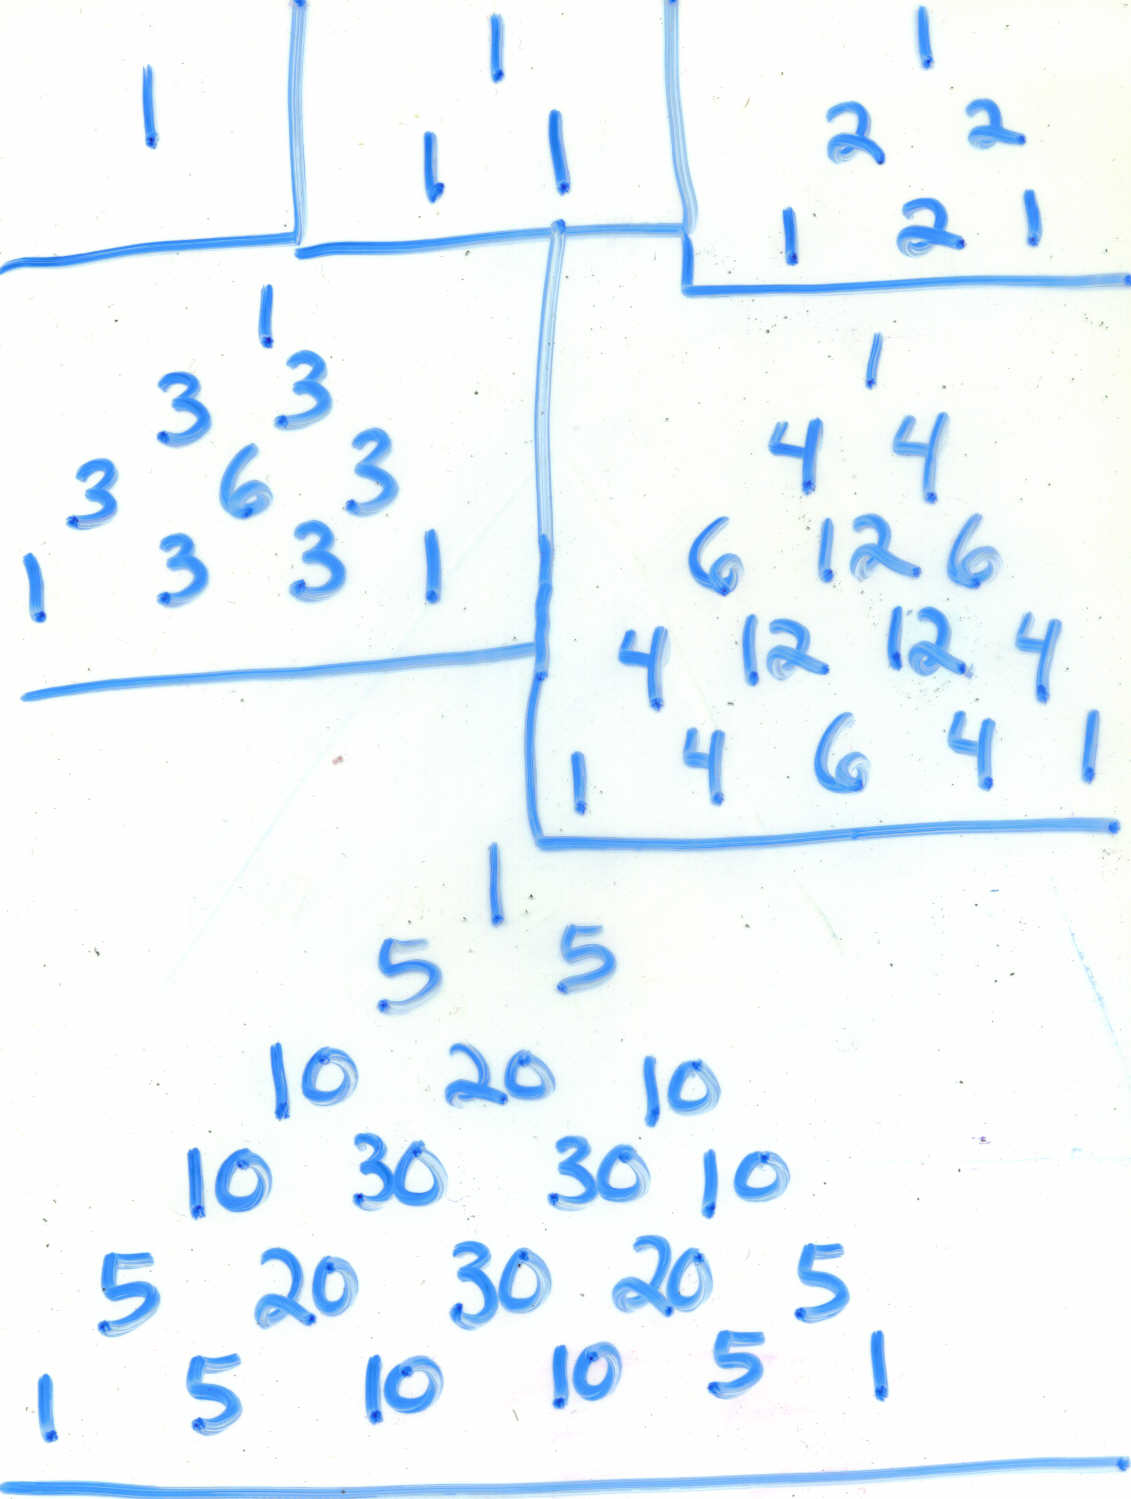 1
1
1 1
1
2 2
1 2 1
1
3 3
3 6 3
1 3 3 1
1
4 4
6 12 6
4 12 12 4
1 4 6 4 1
1
5 5
10 20 10
10 30 30 10
5 20 30 20 5
1 5 10 10 5 1